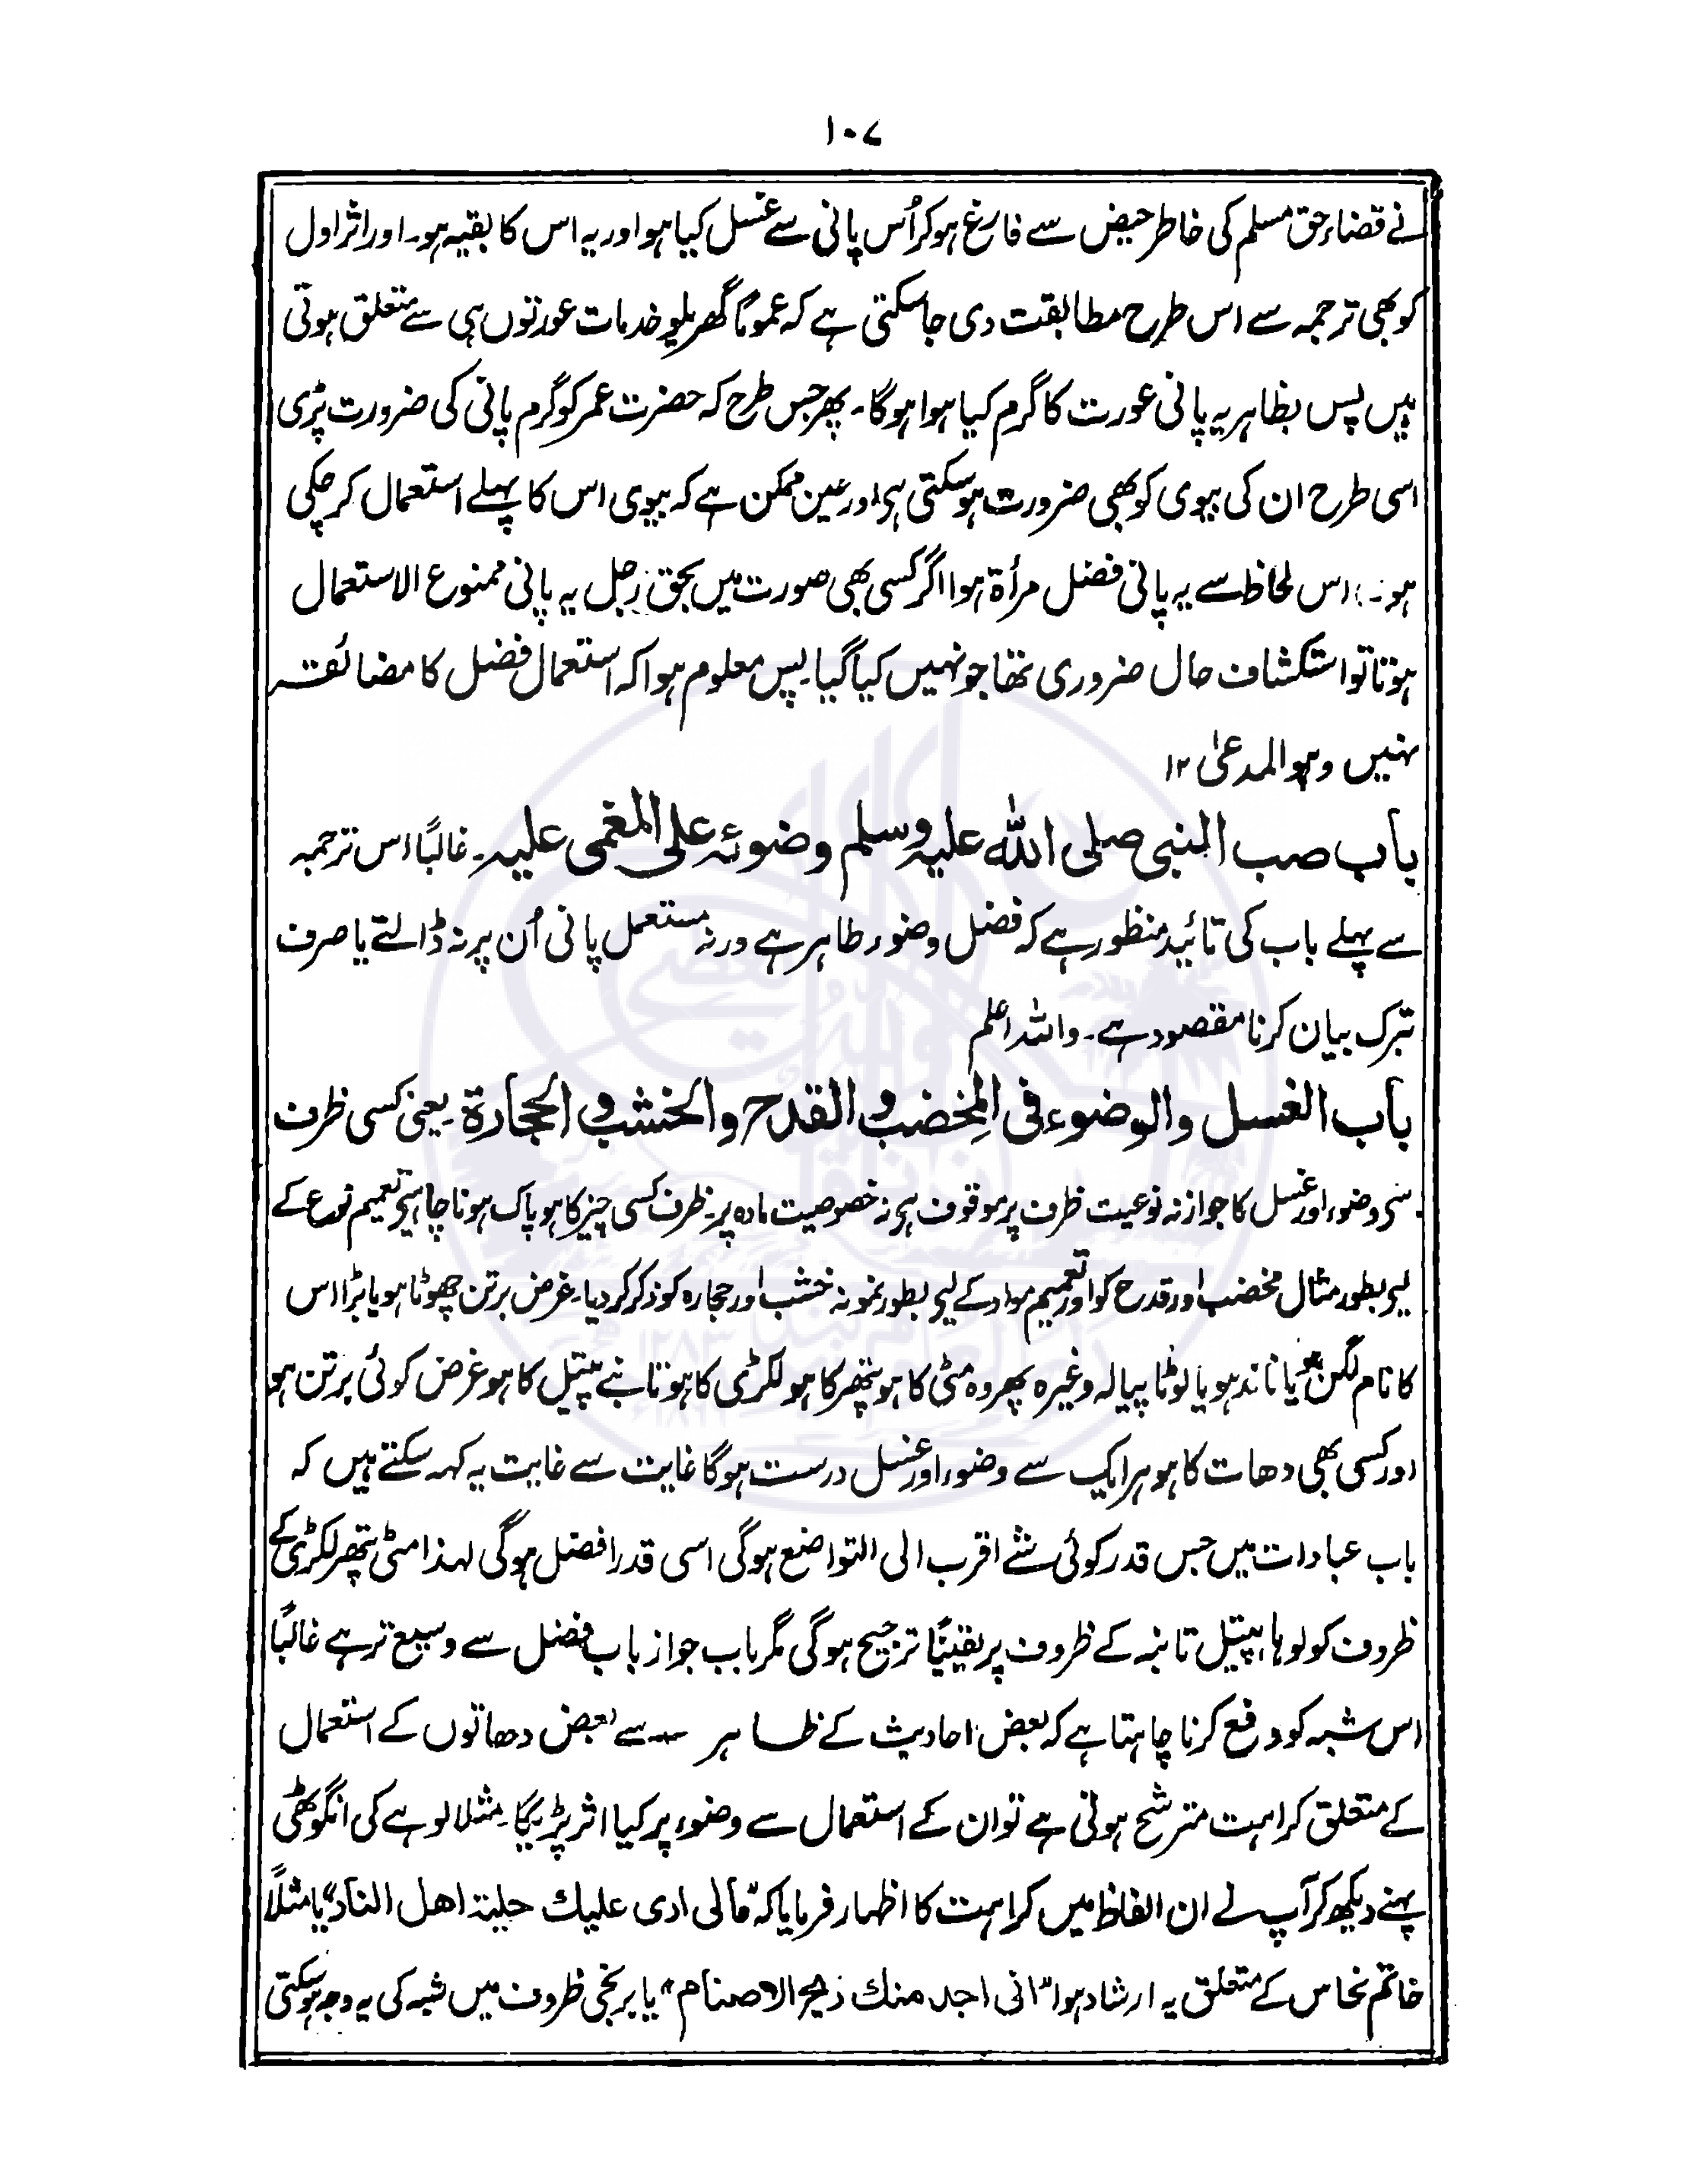 ۱۰۷
نے قضاء حق مسلم کی خاطر حیض سے فارغ ہو کر اُس پانی سے غسل کیا ہو اور یہ اس کا بقیہ ہو۔ اور اثر اول
کو بھی ترجمہ سے اس طرح مطابقت دی جا سکتی ہے کہ عموماً گھریلو خدمات عورتوں ہی سے متعلق ہوتی
ہیں پس بظاہر یہ پانی عورت کا گرم کیا ہوا ہوگا۔ پھر جس طرح کہ حضرت عمر کو گرم پانی کی ضرورت پڑی
اسی طرح ان کی بیوی کو بھی ضرورت ہو سکتی ہی اور عین ممکن ہے کہ بیوی اس کا پہلے استعمال کر چکی
ہو۔ اس لحاظ سے یہ پانی فضل مرأة ہوا اگر کسی بھی صورت میں بحق رجل یہ پانی ممنوع الاستعمال
ہوتا تو استکشاف حال ضروری تھا جو نہیں کیا گیا۔ پس معلوم ہوا کہ استعمال فضل کا مضائقہ
نہیں وہو المدعیٰ ۱۲
باب صب النبی صلی اللہ علیہ وسلم وضوئه علی المغمی علیہ۔ غالباً اس ترجمہ
سے پہلے باب کی تائید منظور ہے کہ فضل وضوء طاہر ہے ورنہ مستعمل پانی اُن پر نہ ڈالتے یا صرف
تبرک بیان کرنا مقصود ہے۔ واللہ اعلم
باب الغسل والوضوء فی المِخضب والقدح والخشب والحجارة۔ یعنی کسی ظرف
سی وضوء اور غسل کا جواز نہ نوعیت ظرف پر موقوف ہی نہ خصوصیت مادہ پر۔ ظرف کسی چیز کا ہو پاک ہونا چاہیئے تعمیم نوع کے
لیے بطور مثال مخضب اور قدح کو اور تعمیم مواد کے لیے بطور نمونہ خشب اور حجارہ کو ذکر کر دیا۔ غرض برتن چھوٹا ہو یا بڑا اس
کا نام لگن ہو یا ناند ہو یا لوٹا پیالہ وغیرہ پھر وہ مٹی کا ہو پتھر کا ہو لکڑی کا ہو تانبے پیتل کا ہو غرض کوئی برتن ہو
اور کسی بھی دھات کا ہو ہر ایک سے وضوء اور غسل درست ہوگا غایت سے غایت یہ کہہ سکتے ہیں کہ
باب عبادات میں جس قدر کوئی شئے اقرب الی التواضع ہوگی اسی قدر افضل ہوگی لہذا مٹی پتھر لکڑی کے
ظروف کو لوہا، پیتل تانبہ کے ظروف پر یقیناً ترجیح ہوگی مگر باب جواز باب فضل سے وسیع تر ہے غالباً
اس شبہ کو دفع کرنا چاہتا ہے کہ بعض احادیث کے ظاہر سے بعض دھاتوں کے استعمال
کے متعلق کراہت مترشح ہوتی ہے تو ان کے استعمال سے وضوء پر کیا اثر پڑیگا۔ مثلاً لوہے کی انگوٹھی
پہنے دیکھ کر آپ نے ان الفاظ میں کراہت کا اظہار فرمایا کہ "مالی اری علیك حلیة اهل النار" یا مثلاً
خاتم نحاس کے متعلق یہ ارشاد ہوا "انی اجد منك ریح الاصنام" یا برنجی ظروف میں شبہ کی یہ وجہ ہو سکتی